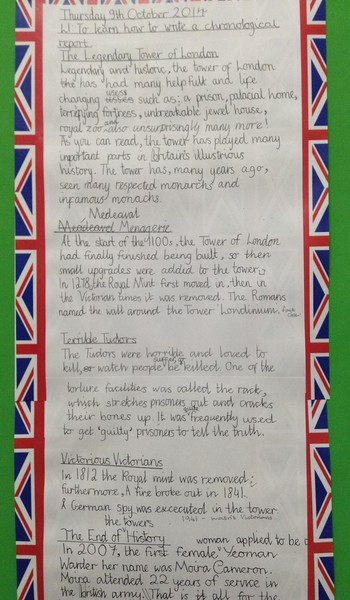 Thursday 9th October 2014
LI: To learn how to write a chronological
report.
The Legendary Tower of London
Legendary and historic, the tower of London
the has had many helpfull and life
uses
changing such as: a prison, palacial home,
terrifying fortress, unbreakable jewel house,
and
royal zoo also unsurprisingly many more!
As you can read, the tower has played many
important parts in Britain's illustrious
history. The towar has, many years ago,
seen many respected monarchs and
infamous monarchs.
Medieaval
Menagerie
At the start of the 1100s, the Tower of London
had finally finished being built, so then
small upgrades were added to the tower.
In 1278 the Royal Mint first moved in, then in
the Victorian times it was removed. The Romans
named the wall around the Tower Londinium.
Terrible Tudors
The Tudors were horrible and loved to
kill, or watch people be killed. One of the
torture facilities was called the rack,
which stretches prisoners out and cracks
their bones up. It was frequently used
quite
to get 'guilty' prisoners to tell the truth.
Victorious Victorians
In 1812 the Royal mint was removed;
furthermore, A fire broke out in 1841.
A German spy was excecuted in the tower.
the towers 1941 -
The End of History woman applied to be a
In 2007, the first female Yeoman
Warder her name was Moira Cameron.
Moira attended 22 years of service in
the british army. That is it all for the